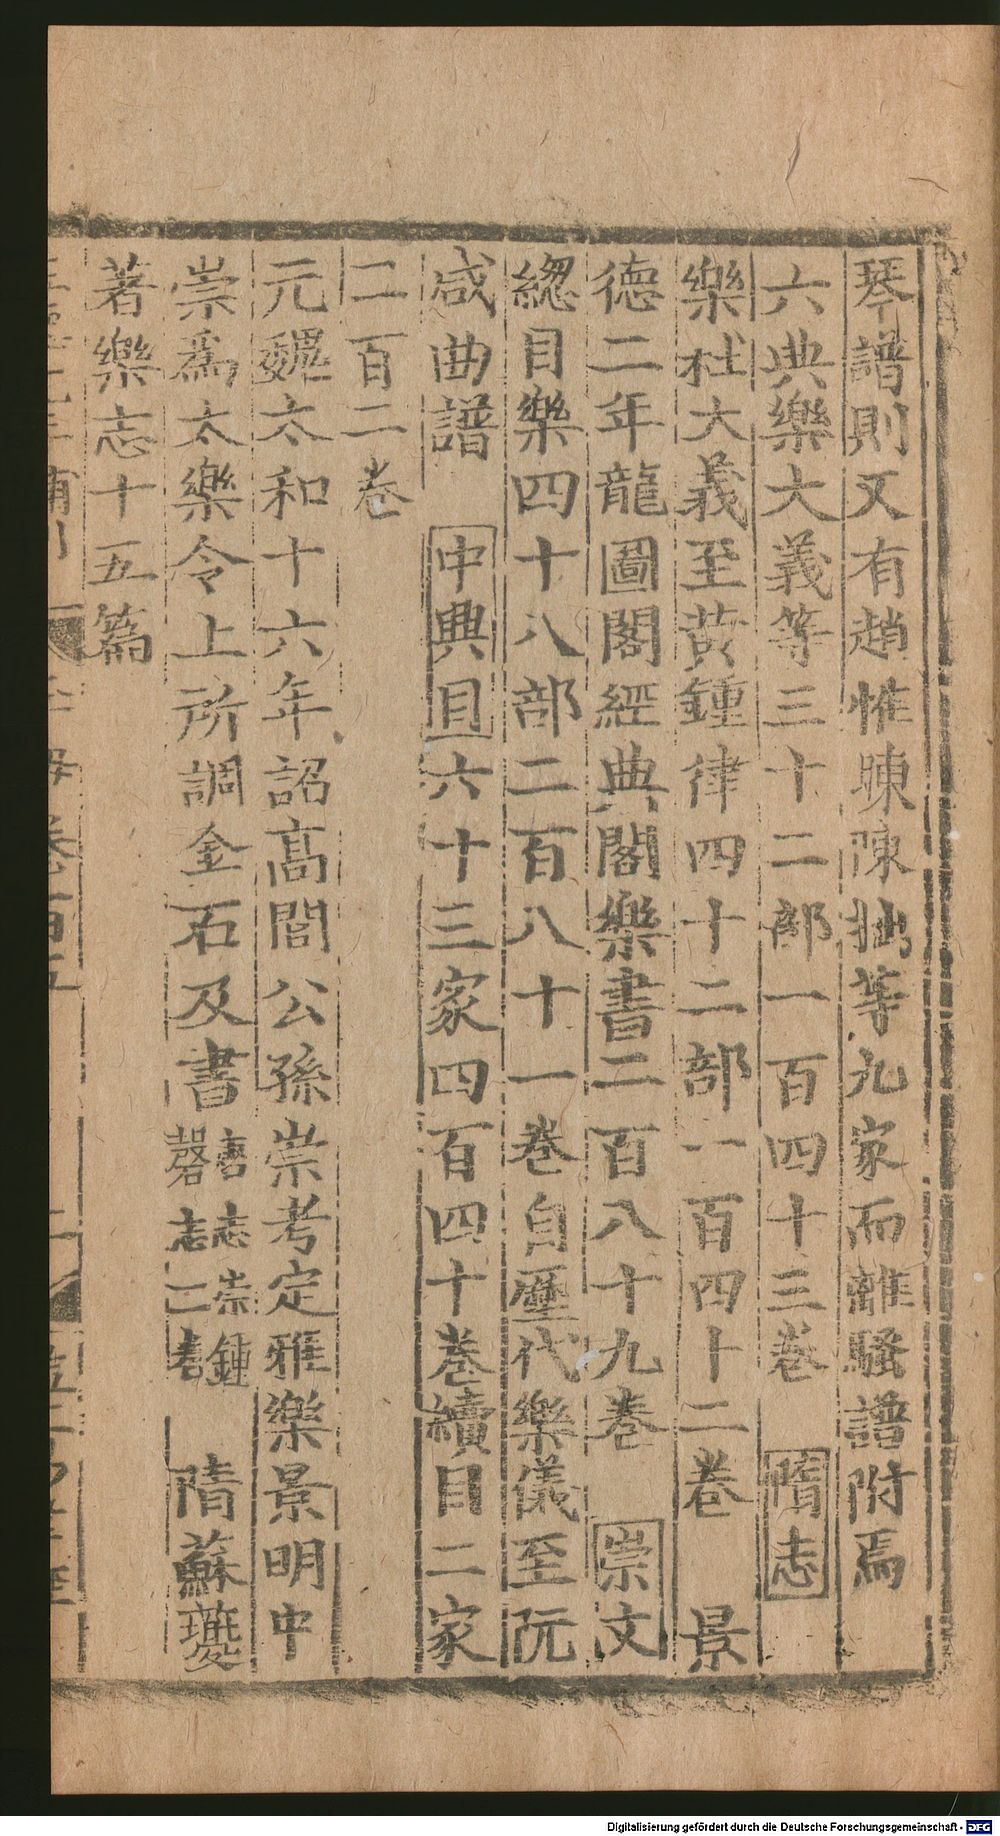 琴譜則又有趙惟暕陳拙等九家而離騷譜附焉
六典樂大義等三十二部一百四十三卷 隋志
樂社大義至黃鍾律四十二部一百四十二卷 景
德二年龍圖閣經典閣樂書二百八十九卷 崇文
緫目樂四十八部二百八十一卷自歷代樂儀至阮
咸曲譜 中興目六十三家四百四十卷續目二家
二百二卷
元魏太和十六年詔高閭公孫崇考定雅樂景明中
崇爲太樂令上所調金石及書唐志崇鍾磬志二書 隋蘇夔
著樂志十五篇
卷百五
Digitalisierung gefördert durch die Deutsche Forschungsgemeinschaft - DFG